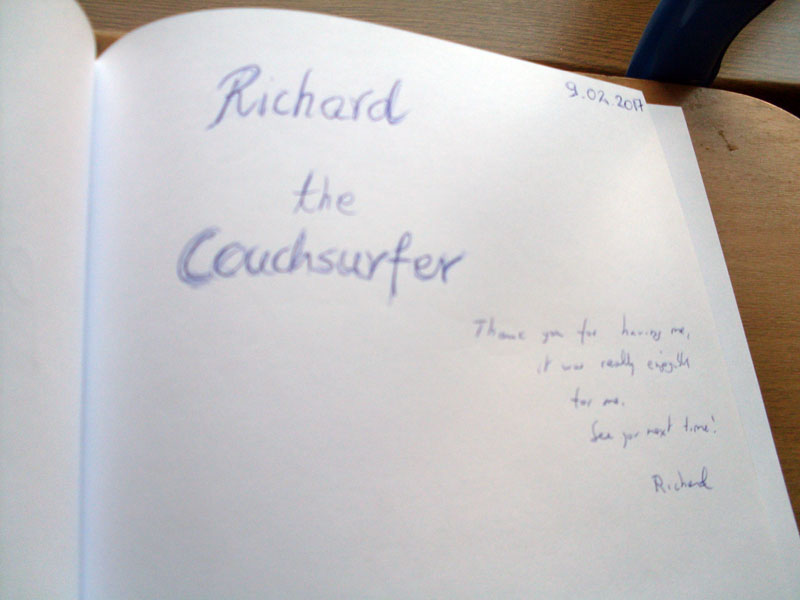 9.02.2017
Richard
the
Couchsurfer
Thank you for having me,
it was really
for me.
See you next time!
Richard